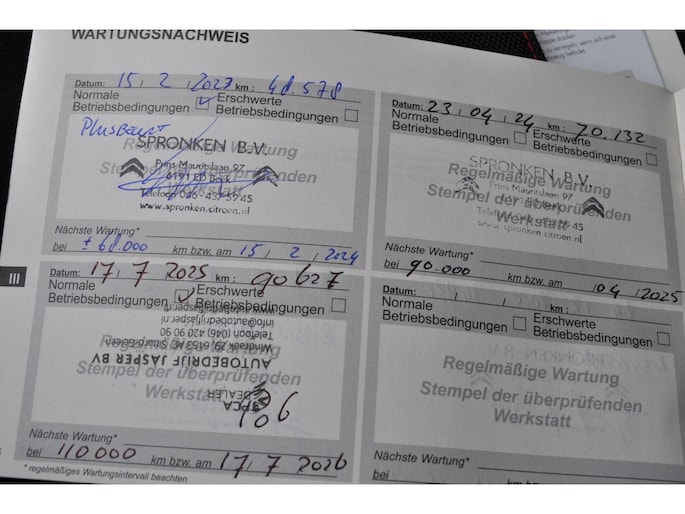 WARTUNGSNACHWEIS
Datum: 15 / 2 / 2023 km: 48.578
Normale Betriebsbedingungen Erschwerte Betriebsbedingungen
SPRONKEN B.V.
Regelmäßige Wartung
Prins Mauritslaan 97
Stempel der überprüfenden
Werkstatt
www.spronken.citroen.nl
Nächste Wartung*
bei ± 68.000 km bzw. am 15 / 2 / 2024
Datum: 23 / 04 / 24 km: 70.132
Normale Betriebsbedingungen Erschwerte Betriebsbedingungen
SPRONKEN B.V.
Regelmäßige Wartung
Prins Mauritslaan 97
Stempel der überprüfenden
Werkstatt
www.spronken.citroen.nl
Nächste Wartung*
bei 90.000 km bzw. am 04 / 2025
III
Datum: 17 / 7 2025 km: 90627
Normale Betriebsbedingungen Erschwerte Betriebsbedingungen
info@autobedrijfjasper.nl
Telefoon (046) 420 90 90
Regelmäßige Wartung
AUTOBEDRIJF JASPER BV
Stempel der überprüfenden
DEALER
Nächste Wartung*
bei 110000 km bzw. am 17 / 7 2026
* regelmäßiges Wartungsintervall beachten
Datum: / / km:
Normale Betriebsbedingungen Erschwerte Betriebsbedingungen
Regelmäßige Wartung
Stempel der überprüfenden
Werkstatt
Nächste Wartung*
bei km bzw. am / /